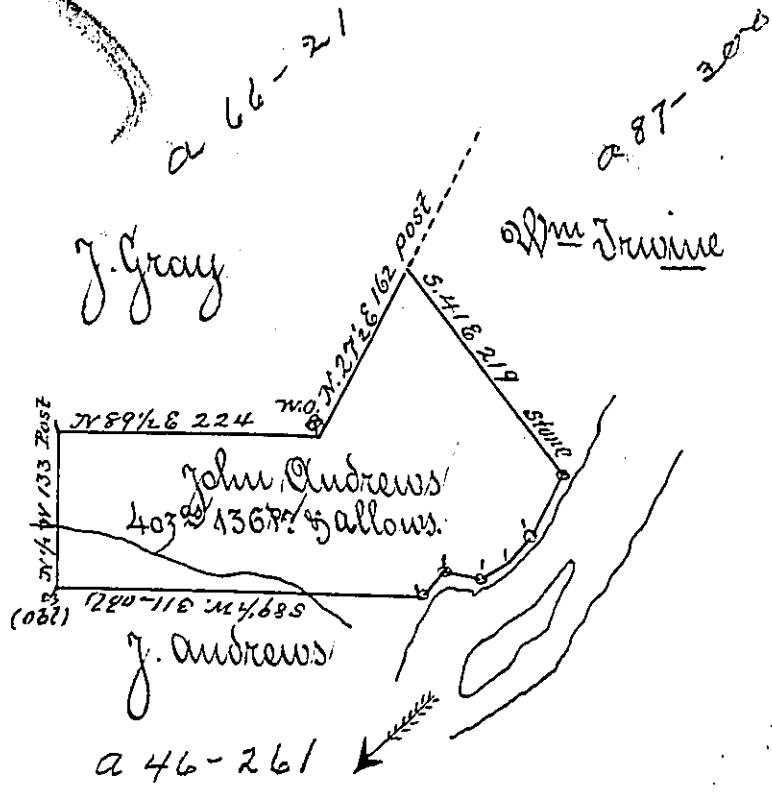 a 66-21
a 87-300
J. Gray
Wm Irwine
N. 27½ E 162 post
S. 41 E 219
stone
W.O.
N 89½ E 224
N ½ W 133 Post
John Andrews
403 as 136 Ps & allows.
S 89½ W. 311 - oak
(031)
J. Andrews
a 46-261